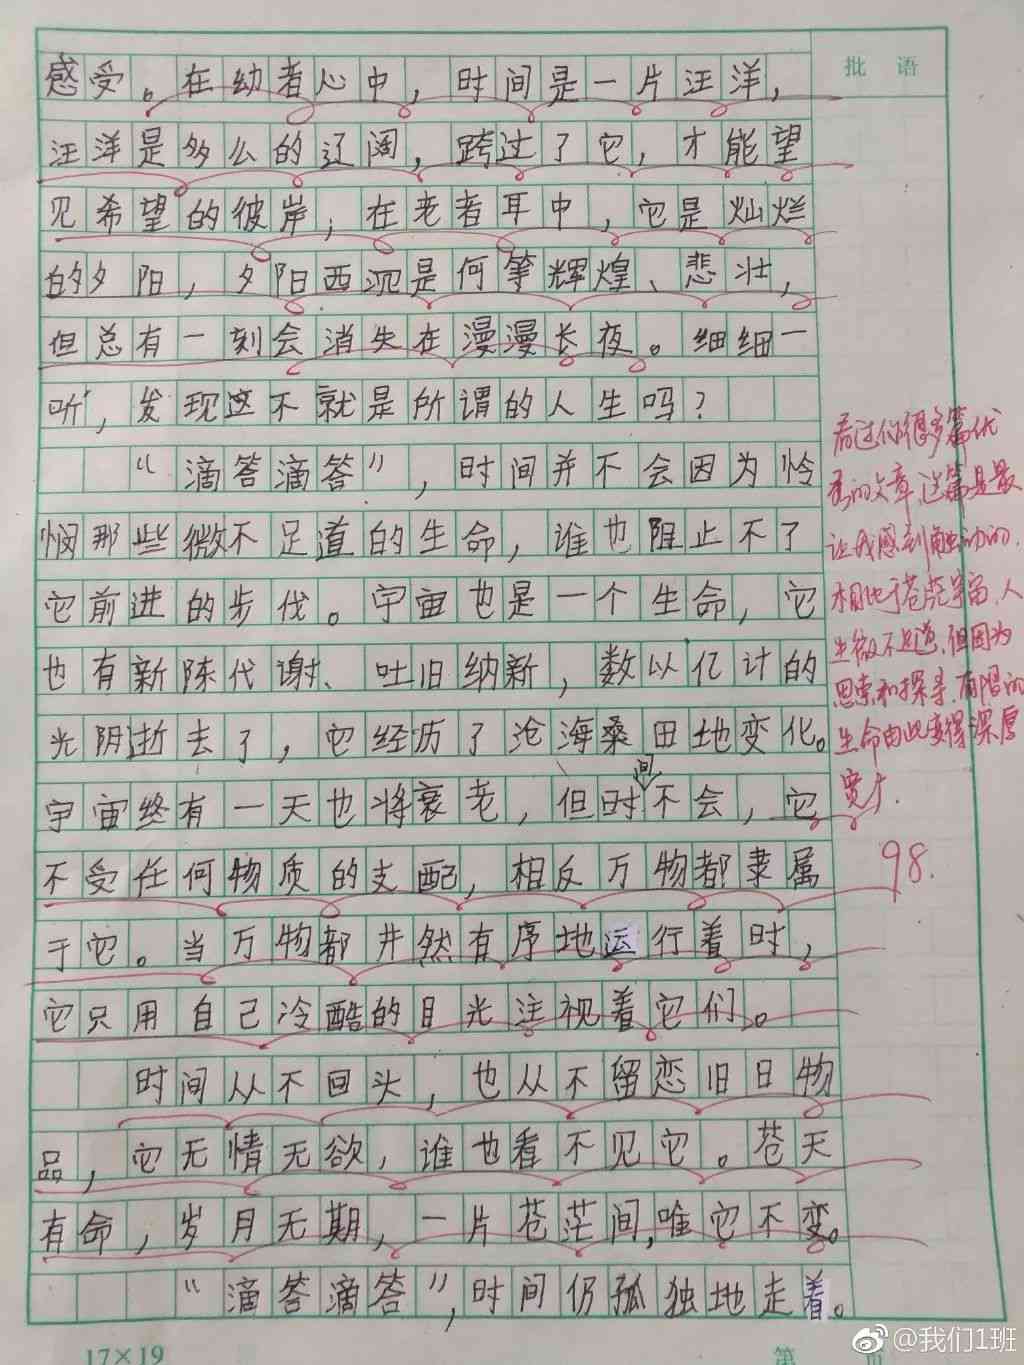 批 语
感受。在幼者心中，时间是一片汪洋，
汪洋是多么的辽阔，跨过了它，才能望
见希望的彼岸；在老者耳中，它是灿烂
的夕阳，夕阳西沉是何等辉煌、悲壮，
但总有一刻会消失在漫漫长夜。细细一
听，发现这不就是所谓的人生吗？
“滴答滴答”，时间并不会因为怜
悯那些微不足道的生命，谁也阻止不了
它前进的步伐。宇宙也是一个生命，它
也有新陈代谢、吐旧纳新，数以亿计的
光阴逝去了，它经历了沧海桑田地变化。
宇宙终有一天也将衰老，但时间不会，它
不受任何物质的支配，相反万物都隶属
于它。当万物都井然有序地运行着时，
它只用自己冷酷的目光注视着它们。
时间从不回头，也从不留恋旧日物
品，它无情无欲，谁也看不见它。苍天
有命，岁月无期，一片苍茫间，唯它不变。
“滴答滴答”，时间仍孤独地走着。
看过你很多篇优
秀的文章，这篇是最
让我感到触动的，
相比于苍茫宇宙，人
生微不足道，但因为
思索和探寻，有限的
生命由此变得深厚
宽广．
98．
17×19
第 页
@我们1班